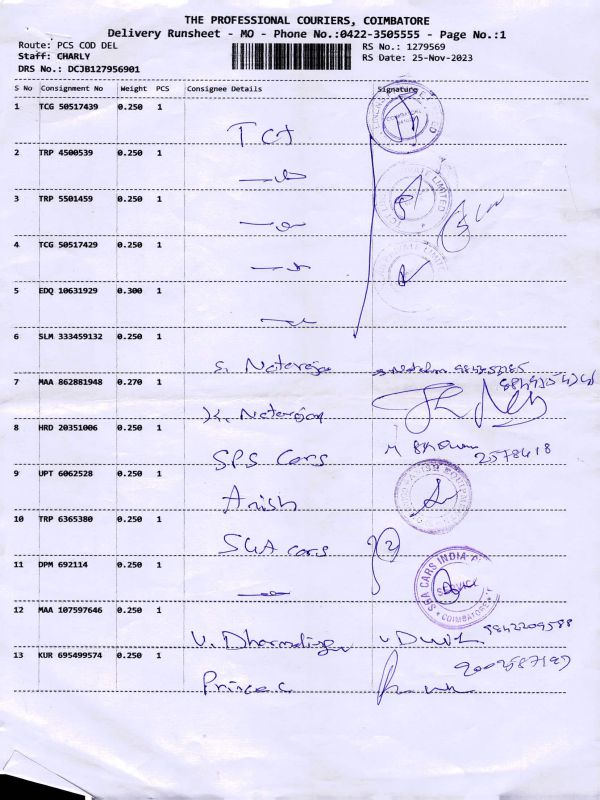 THE PROFESSIONAL COURIERS, COIMBATORE
Delivery Runsheet - MO - Phone No.:0422-3505555 - Page No.:1
Route: PCS COD DEL
RS No.: 1279569
Staff: CHARLY
RS Date: 25-Nov-2023
DRS No.: DCJB127956901
S No Consignment No Weight PCS Consignee Details Signature
1 TCG 50517439 0.250 1
TCI
2 TRP 4500539 0.250 1
3 TRP 5501459 0.250 1
4 TCG 50517429 0.250 1
5 EDQ 10631929 0.300 1
6 SLM 333459132 0.250 1
S. Nataraja
7 MAA 862881948 0.270 1
K. Natarajan
8 HRD 20351006 0.250 1
SPS Cars
2578418
9 UPT 6062528 0.250 1
Anish
10 TRP 6365380 0.250 1
SGA cars 2
11 DPM 692114 0.250 1
SGA CARS INDIA
SERVICE
COIMBATORE
12 MAA 107597646 0.250 1
9842209588
13 KUR 695499574 0.250 1
Prince.C